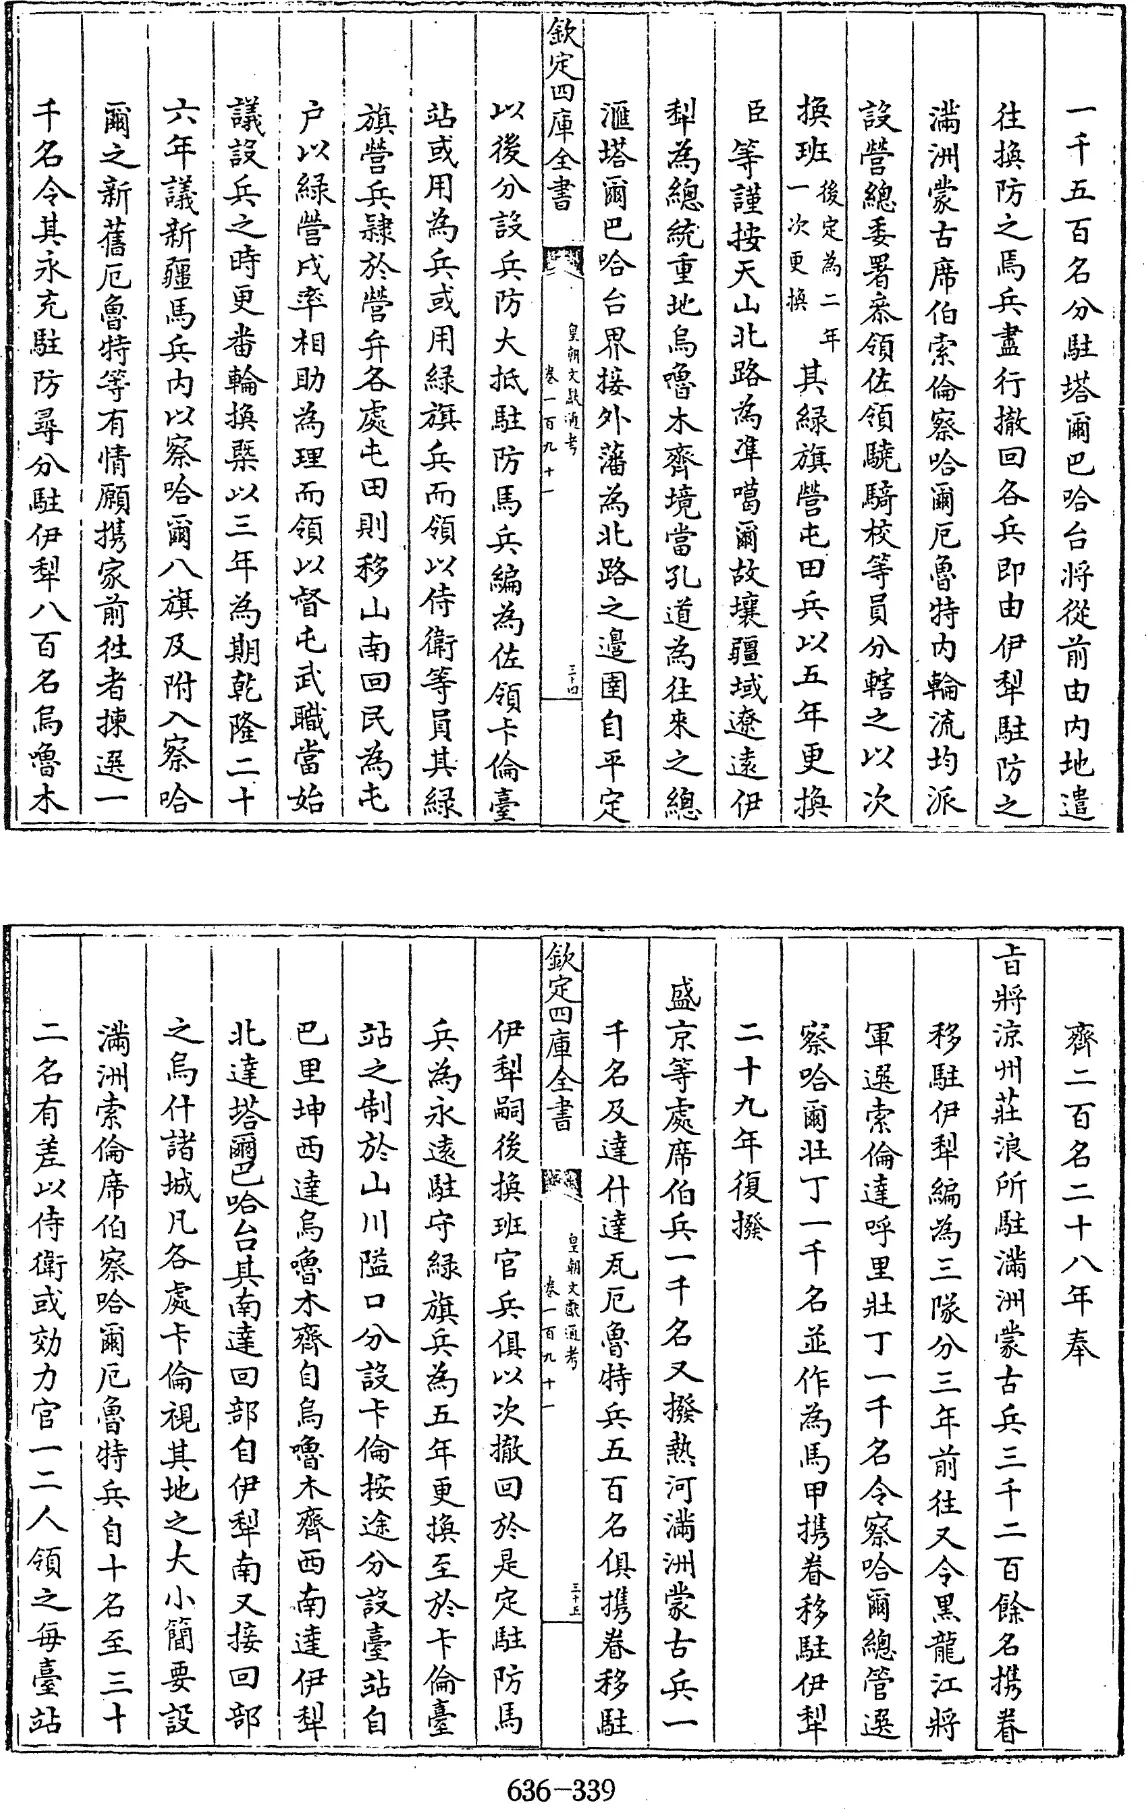 一千五百名分駐塔爾巴哈台將從前由内地遣
往換防之馬兵盡行撤回各兵即由伊犁駐防之
滿洲蒙古席伯索倫察哈爾厄魯特内輪流均派
設營總委署叅領佐領驍騎校等員分轄之以次
換班後定為二年一次更換其緑旗營屯田兵以五年更換
臣等謹按天山北路為準噶爾故壤疆域遼遠伊
犁為總統重地烏嚕木齊境當孔道為往來之總
滙塔爾巴哈台界接外藩為北路之邉圉自平定
欽定四庫全書
皇朝文獻通考
卷一百九十一
三十四
以後分設兵防大抵駐防馬兵編為佐領卡倫臺
站或用為兵或用緑旗兵而領以侍衛等員其緑
旗營兵隸於營弁各處屯田則移山南回民為屯
户以緑營戍率相助為理而領以督屯武職當始
議設兵之時更畨輪換槩以三年為期乾隆二十
六年議新疆馬兵内以察哈爾八旗及附入察哈
爾之新舊厄魯特等有情願携家前往者揀選一
千名令其永充駐防尋分駐伊犁八百名烏嚕木
齊二百名二十八年奉
㫖將涼州莊浪所駐滿洲蒙古兵三千二百餘名携眷
移駐伊犁編為三隊分三年前往又令黒龍江將
軍選索倫達呼里壯丁一千名令察哈爾總管選
察哈爾壯丁一千名並作為馬甲携眷移駐伊犁
二十九年復撥
盛京等處席伯兵一千名又撥熱河滿洲蒙古兵一
千名及達什達瓦厄魯特兵五百名俱携眷移駐
欽定四庫全書
皇朝文獻通考
卷一百九十一
三十五
伊犁嗣後換班官兵俱以次撤回於是定駐防馬
兵為永遠駐守緑旗兵為五年更換至於卡倫臺
站之制於山川隘口分設卡倫按途分設臺站自
巴里坤西達烏嚕木齊自烏嚕木齊西南達伊犁
北達塔爾巴哈台其南達回部自伊犁南又接回部
之烏什諸城凡各處卡倫視其地之大小簡要設
滿洲索倫席伯察哈爾厄魯特兵自十名至三十
二名有差以侍衛或効力官一二人領之每臺站
636-339